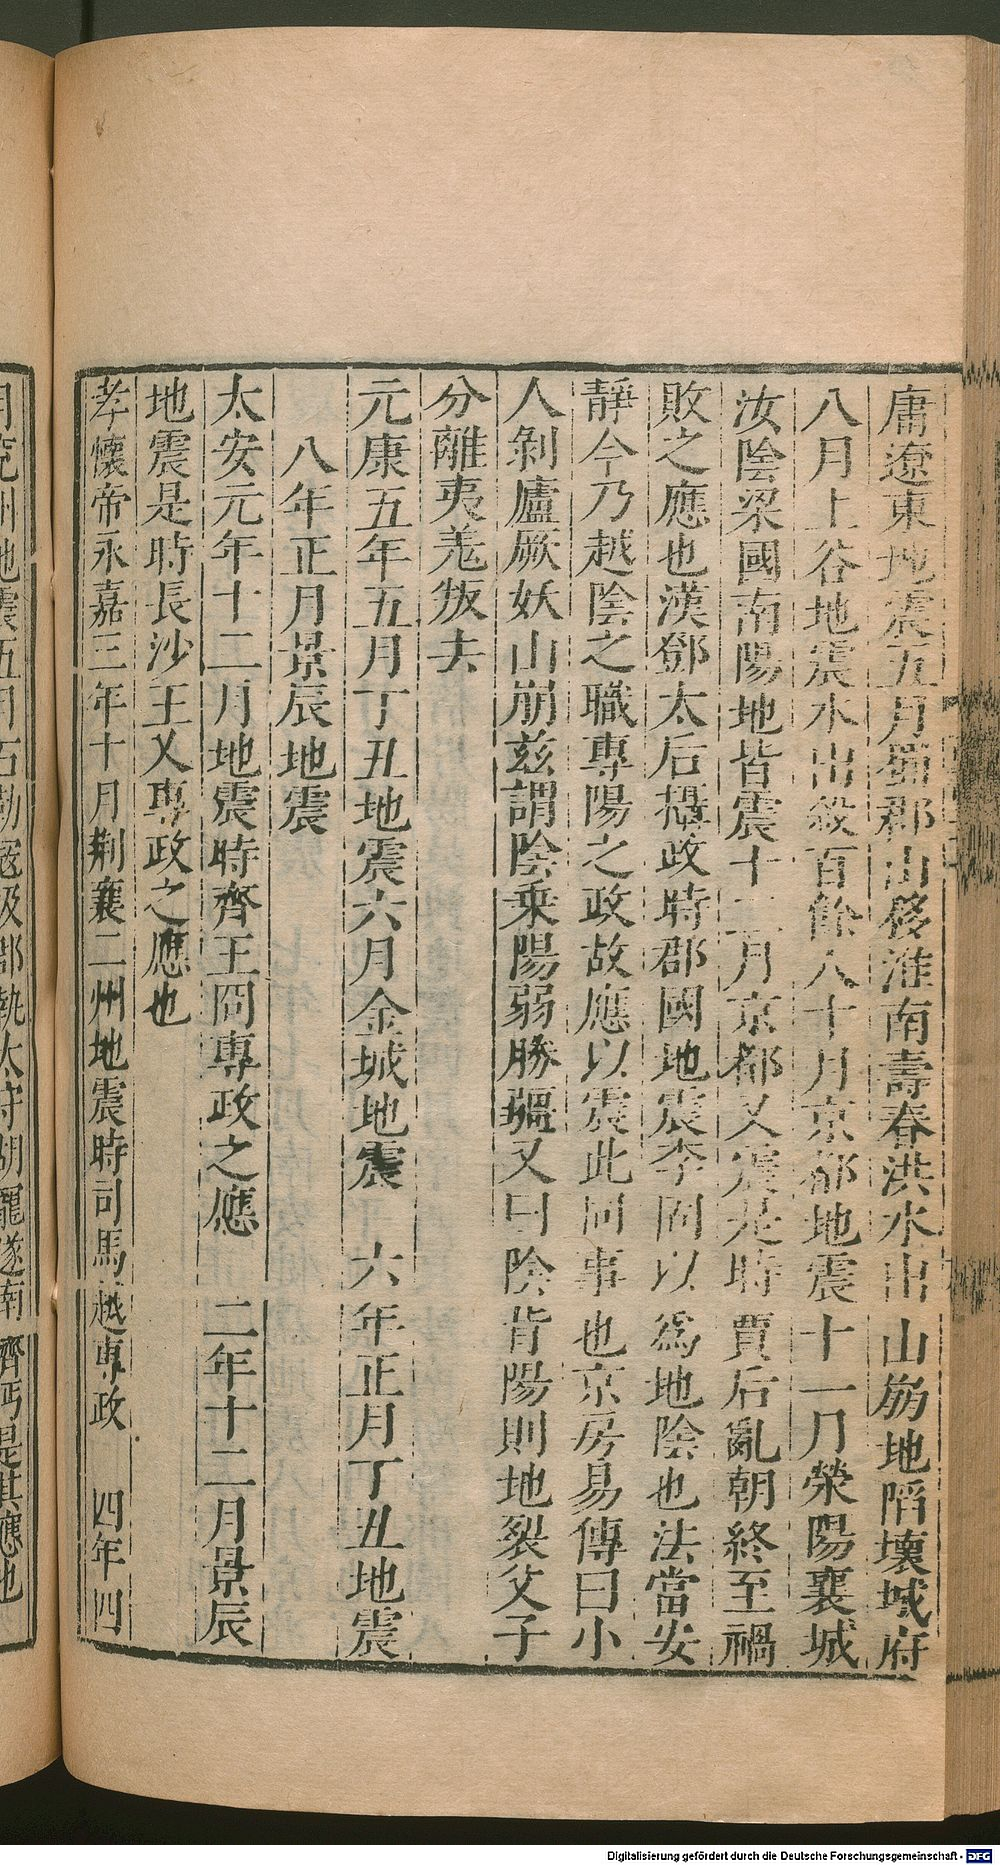 庸遼東地震五月蜀郡山移淮南壽春洪水出山崩地陷壞城府
八月上谷地震水出殺百餘人十月京都地震十一月滎陽襄城
汝陰梁國南陽地皆震十二月京都又震是時賈后亂朝終至禍
敗之應也漢鄧太后攝政時郡國地震李固以爲地陰也法當安
靜今乃越陰之職專陽之政故應以震此同事也京房易傳曰小
人剝廬厥妖山崩茲謂陰乘陽弱勝彊又曰陰背陽則地裂父子
分離夷羌叛去
元康五年五月丁丑地震六月金城地震 六年正月丁丑地震
八年正月景辰地震
太安元年十二月地震時齊王冏專政之應 二年十二月景辰
地震是時長沙王乂專政之應也
孝懷帝永嘉三年十月荊襄二州地震時司馬越專政 四年四
月兗州地震五月石勒寇汲郡執太守胡寵遂南濟河是其應也
Digitalisierung gefördert durch die Deutsche Forschungsgemeinschaft - DFG